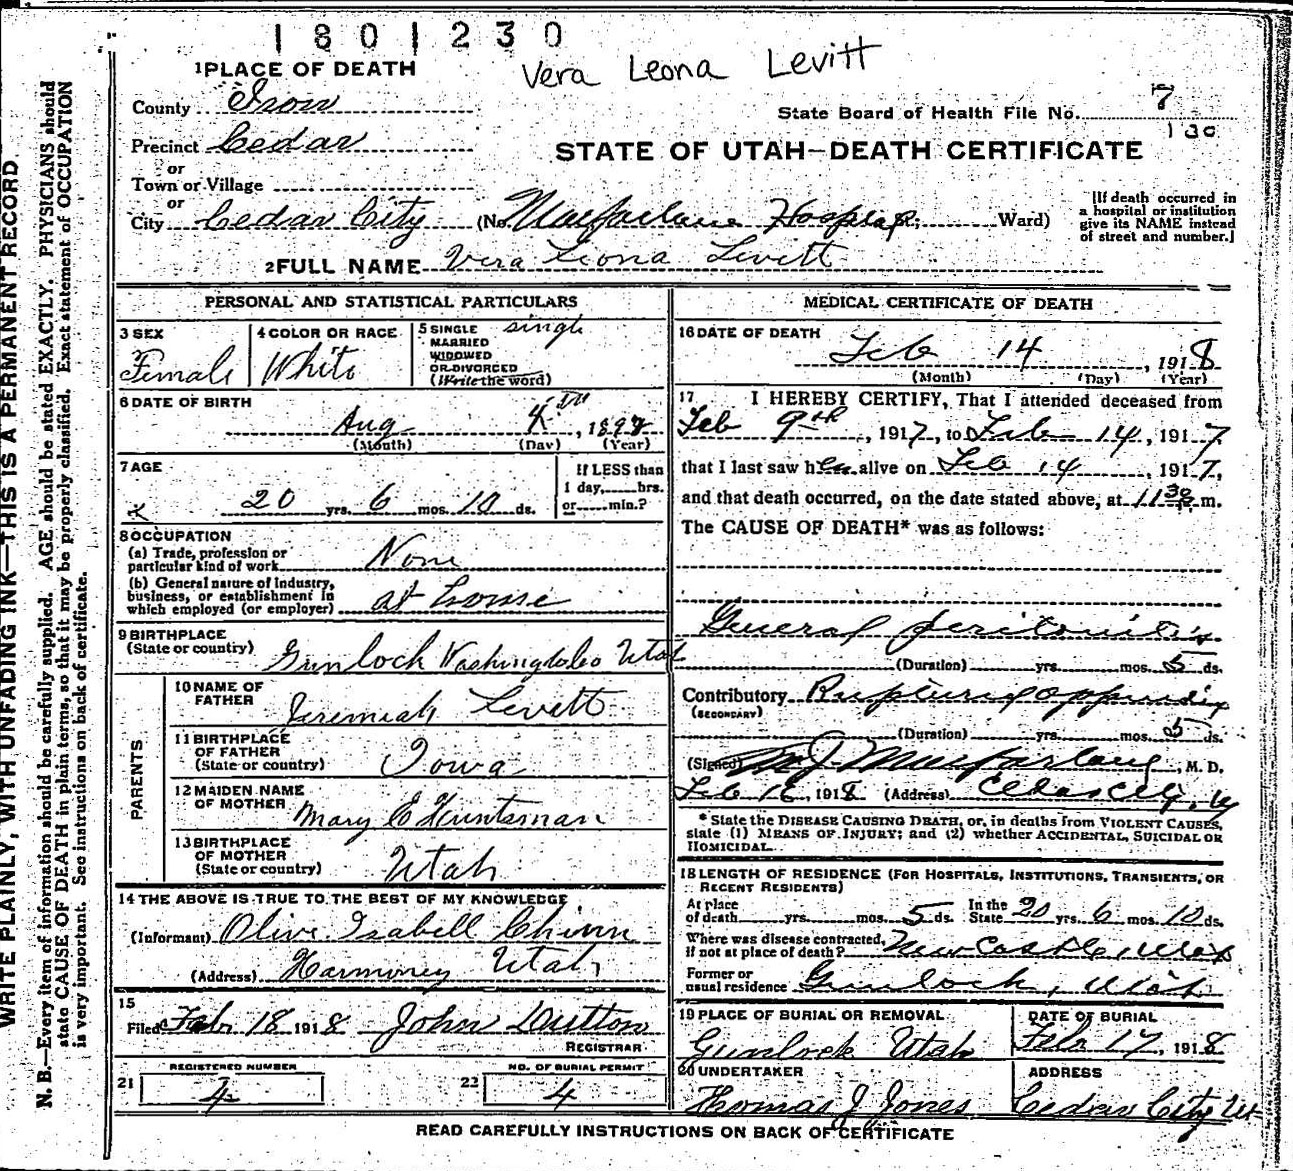 1801230
Vera Leona Levitt
1 PLACE OF DEATH
County Iron
State Board of Health File No. 7
Precinct Cedar
130
or
STATE OF UTAH—DEATH CERTIFICATE
Town or Village
or
City Cedar City (No. Macfarlane Hospital; Ward)
[If death occurred in a hospital or institution give its NAME instead of street and number.]
2 FULL NAME Vera Leona Levitt
PERSONAL AND STATISTICAL PARTICULARS
3 SEX Female
4 COLOR OR RACE White
5 SINGLE MARRIED WIDOWED OR DIVORCED (Write the word) single
6 DATE OF BIRTH
Aug 4th, 1897
(Month) (Day) (Year)
7 AGE
20 yrs. 6 mos. 10 ds.
If LESS than 1 day, hrs. or min.?
8 OCCUPATION
(a) Trade, profession or particular kind of work None
(b) General nature of industry, business, or establishment in which employed (or employer) at home
9 BIRTHPLACE (State or country) Gunlock Washington Co Utah
PARENTS
10 NAME OF FATHER Jeremiah Levitt
11 BIRTHPLACE OF FATHER (State or country) Iowa
12 MAIDEN NAME OF MOTHER Mary E Huntsman
13 BIRTHPLACE OF MOTHER (State or country) Utah
14 THE ABOVE IS TRUE TO THE BEST OF MY KNOWLEDGE
(Informant) Olive Isabell Chinn
(Address) Harmoney Utah
15
Filed Feb 18 1918 John Dutton
REGISTRAR
REGISTERED NUMBER
21 4
NO. OF BURIAL PERMIT
22 4
MEDICAL CERTIFICATE OF DEATH
16 DATE OF DEATH
Feb 14, 1918
(Month) (Day) (Year)
17 I HEREBY CERTIFY, That I attended deceased from
Feb 9th, 1917, to Feb 14, 1917
that I last saw her alive on Feb 14, 1917,
and that death occurred, on the date stated above, at 11 30 m.
The CAUSE OF DEATH* was as follows:
General peritonitis
(Duration) yrs. mos. 5 ds.
Contributory Ruptured appendix
(SECONDARY)
(Duration) yrs. mos. 5 ds.
(Signed) M J Macfarlane, M. D.
Feb 16, 1918 (Address) Cedar City, Ut
* State the DISEASE CAUSING DEATH, or, in deaths from VIOLENT CAUSES, state (1) MEANS OF INJURY; and (2) whether ACCIDENTAL, SUICIDAL OR HOMICIDAL.
18 LENGTH OF RESIDENCE (FOR HOSPITALS, INSTITUTIONS, TRANSIENTS, OR RECENT RESIDENTS)
At place of death yrs. mos. 5 ds. In the State 20 yrs. 6 mos. 10 ds.
Where was disease contracted, if not at place of death? Newcastle, Utah
Former or usual residence Gunlock, Utah
19 PLACE OF BURIAL OR REMOVAL
Gunlock Utah
DATE OF BURIAL
Feb 17, 1918
20 UNDERTAKER
Thomas J Jones
ADDRESS
Cedar City Ut
READ CAREFULLY INSTRUCTIONS ON BACK OF CERTIFICATE
WRITE PLAINLY, WITH UNFADING INK—THIS IS A PERMANENT RECORD
N. B.—Every item of information should be carefully supplied. AGE should be stated EXACTLY. PHYSICIANS should
state CAUSE OF DEATH in plain terms, so that it may be properly classified. Exact statement of OCCUPATION
is very important. See instructions on back of certificate.